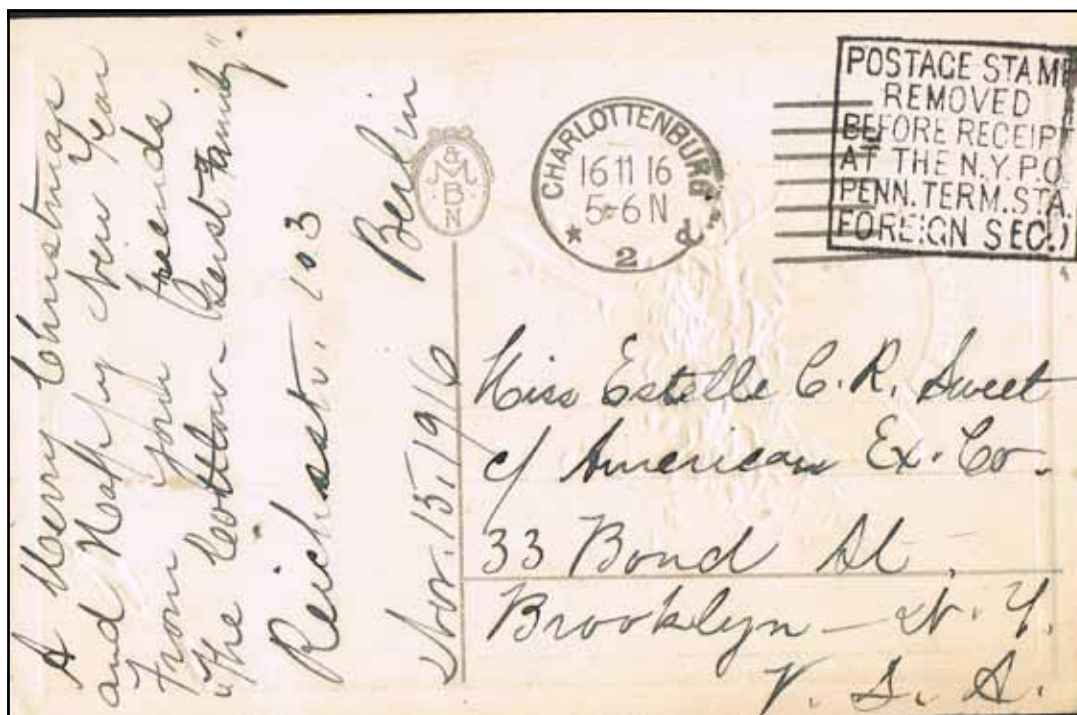 A Merry Christmas
and Happy New Year
From your friends
"The Cottlow - Gerst Family".
Reichsstr. 103
Nov. 15, 1916 Berlin
M & B N
CHARLOTTENBURG
16 11 16
5-6 N
* 2 d.
POSTAGE STAMP
REMOVED
BEFORE RECEIPT
AT THE N.Y.P.O.
PENN. TERM. STA.
FOREIGN SEC.)
Miss Estelle C. R. Sweet
c/ American Ex. Co.
33 Bond St.
Brooklyn - N. Y.
U. S. A.